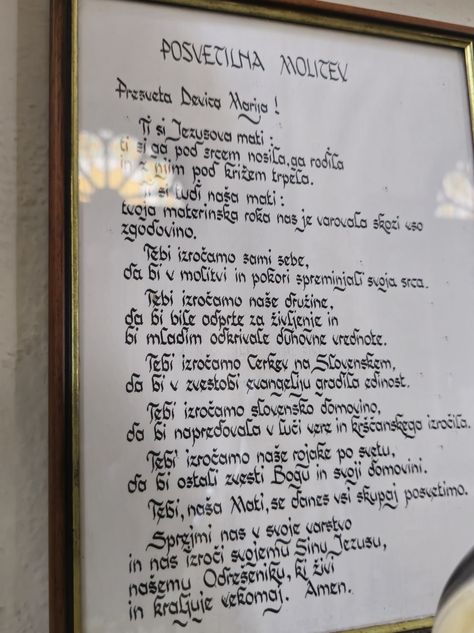 POSVETILNA MOLITEV
Presveta Devica Marija!
Ti si Jezusova mati:
ti si ga pod srcem nosila, ga rodila
in z njim pod križem trpela.
Ti si tudi naša mati:
tvoja materinska roka nas je varovala skozi vso
zgodovino.
Tebi izročamo sami sebe,
da bi v molitvi in pokori spreminjali svoja srca.
Tebi izročamo naše družine,
da bi bile odprte za življenje in
bi mladim odkrivale duhovne vrednote.
Tebi izročamo Cerkev na Slovenskem,
da bi v zvestobi evangeliju gradila edinost.
Tebi izročamo slovensko domovino,
da bi napredovala v luči vere in krščanskega izročila.
Tebi izročamo naše rojake po svetu,
da bi ostali zvesti Bogu in svoji domovini.
Tebi, naša Mati, se danes vsi skupaj posvetimo.
Sprejmi nas v svoje varstvo
in nas izroči svojemu Sinu Jezusu,
našemu Odrešeniku, ki živi
in kraljuje vekomaj. Amen.